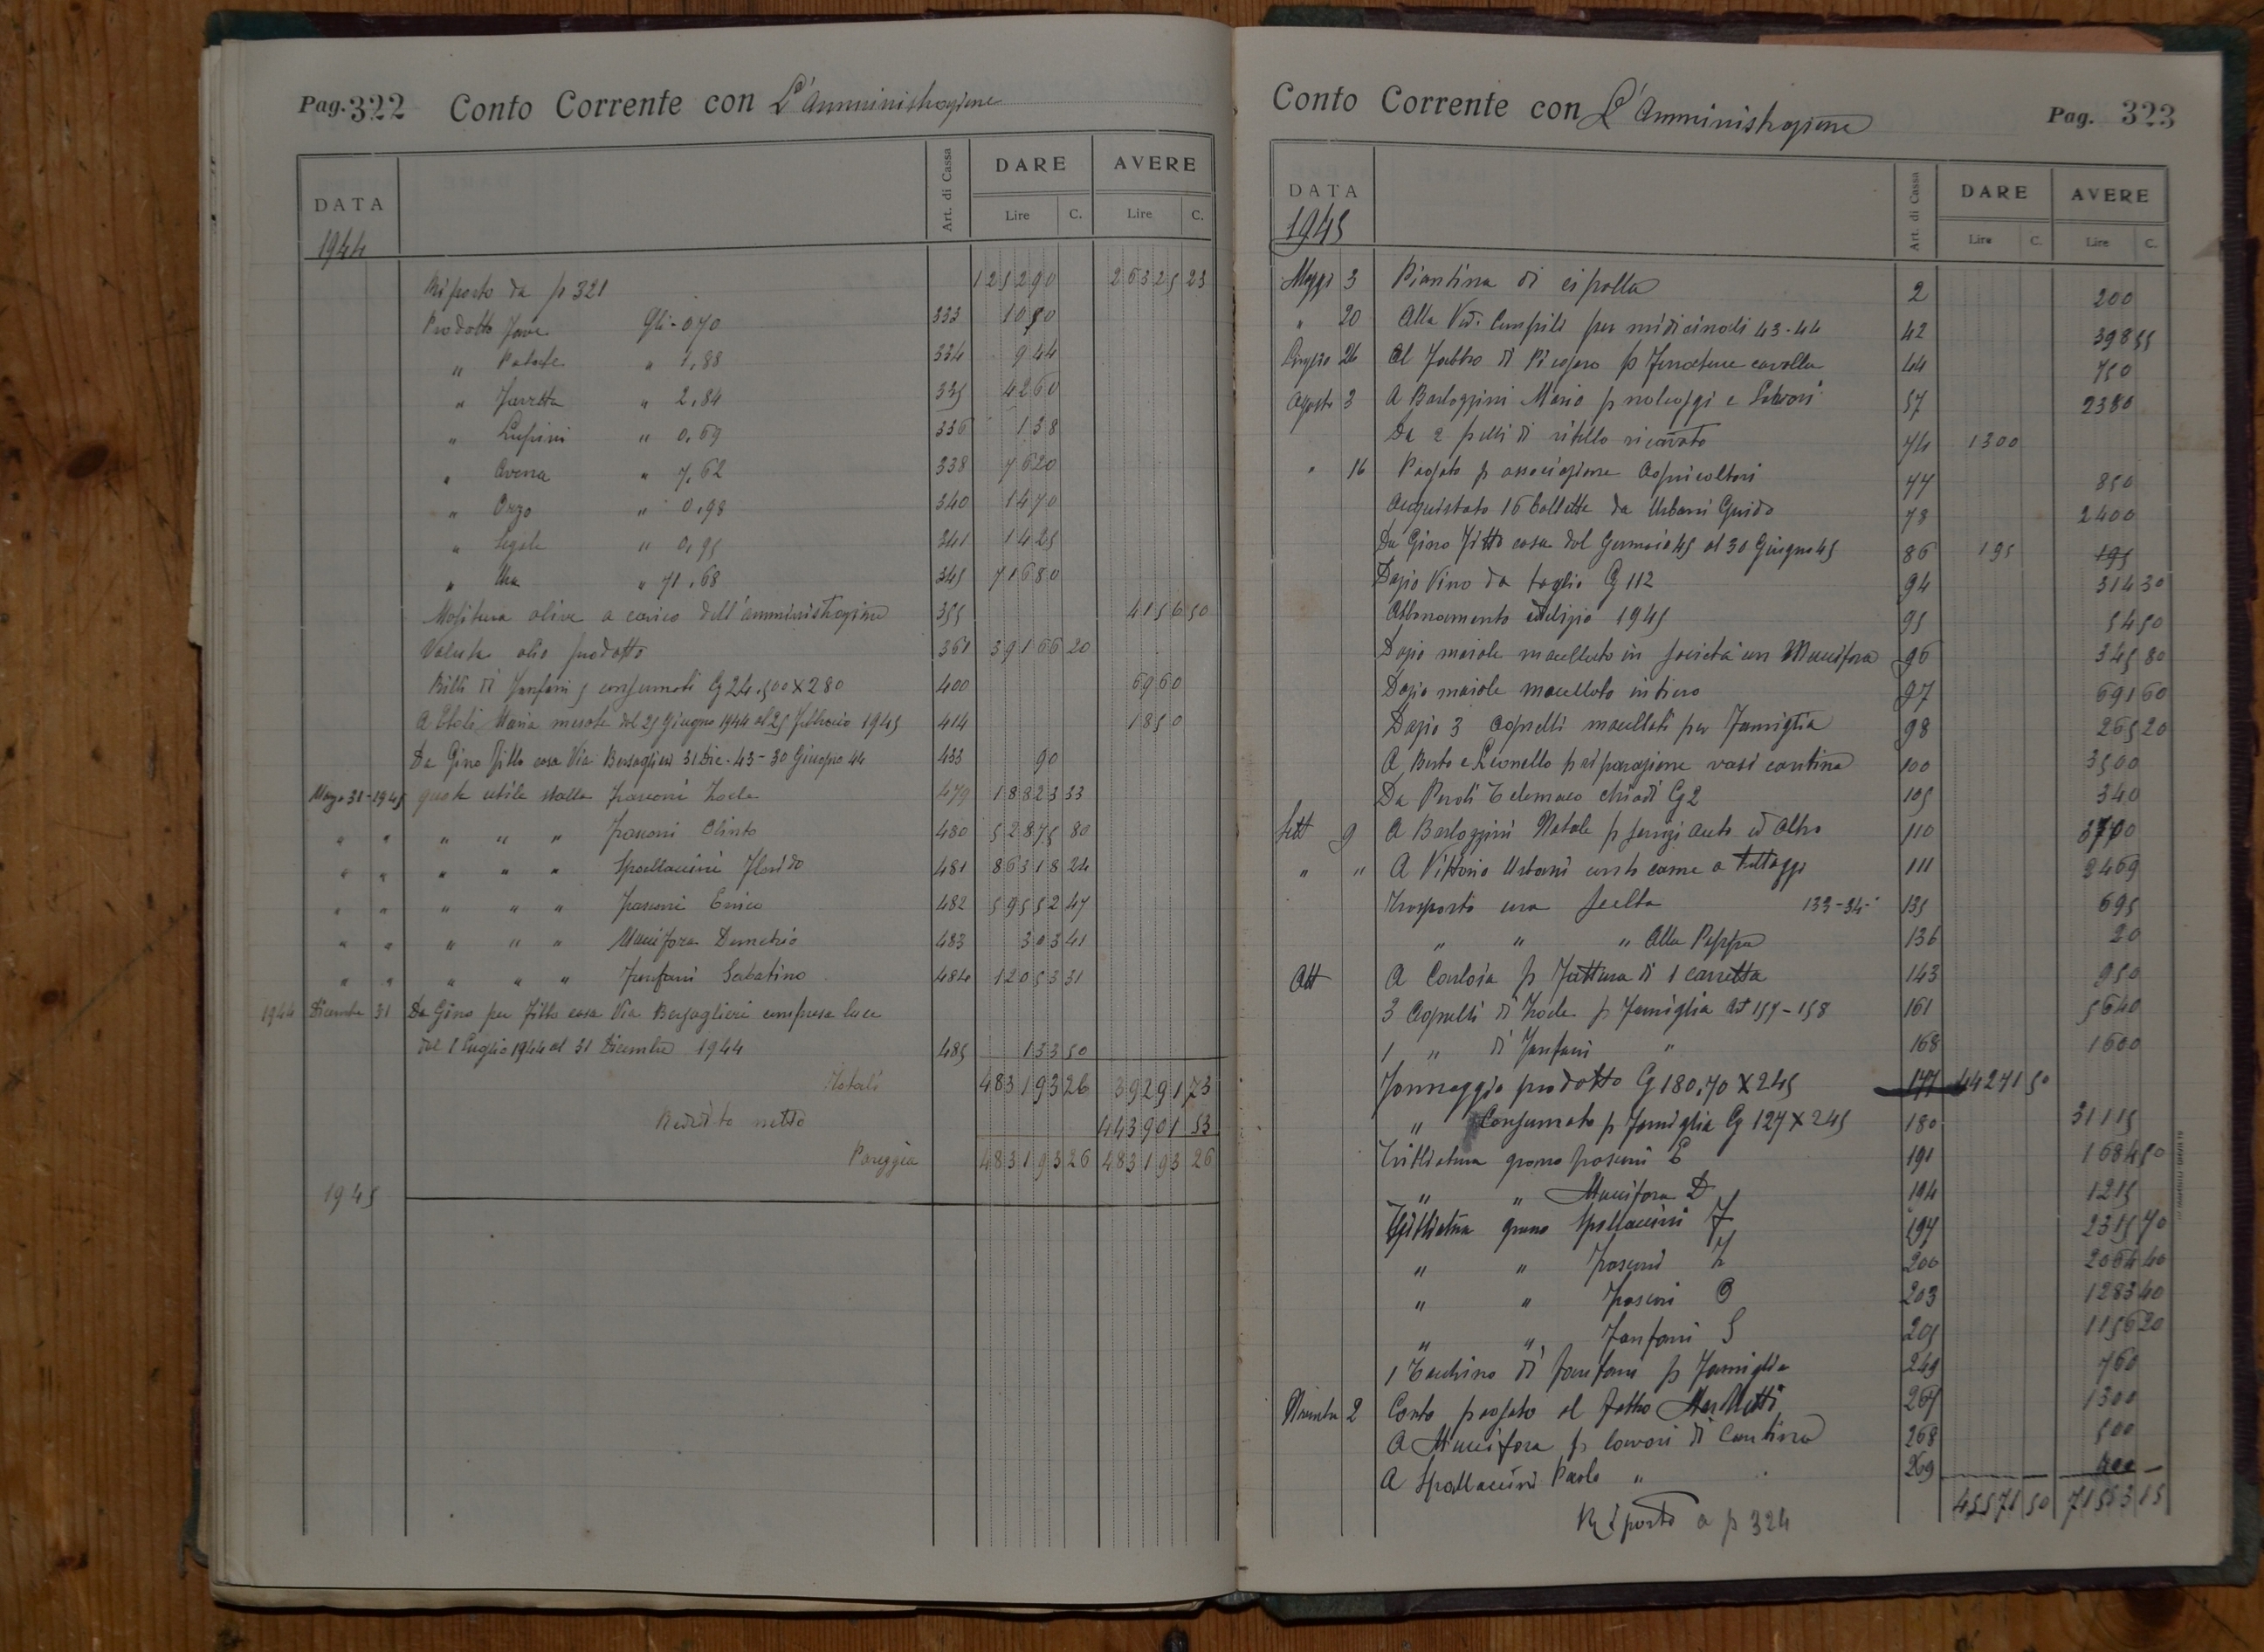 Pag. 322 Conto Corrente con L'Amministrazione
DATA Art. di Cassa DARE AVERE
Lire C. Lire C.
1944
Riporto da p 321 125290 26325 23
Prodotto fave Qli - 0,70 333 1050
" Patate " 1,88 334 944
" " 2,84 335 4260
" Lupini " 0,69 336 138
" Avena " 7,62 338 7620
" Orzo " 0,98 340 1470
" Segale " 0,95 341 1425
" Uva " 71,68 345 71680
Molitura olive a carico dell'amministrazione 355 4156 50
Valuta olio prodotto 361 39166 20
di Fanfani S consumati Cg 24,500 X 280 400 6960
A Maria mesate dal 25 Giugno 1944 al 25 Febbraio 1945 414 1850
Da Gino fitto casa Via Bersaglieri 31 Dic. 43 - 30 Giugno 44 433 90
Marzo 31 - 1945 quota utile stalla 479 18823 33
" " " " " Olinto 480 52875 80
" " " " " Spallaccini Florido 481 86318 24
" " " " " Enrico 482 59552 47
" " " " " Mucifora Demetrio 483 303 41
" " " " " Fanfani Sabatino 484 12053 31
1944 Dicembre 31 Da Gino per fitto casa Via Bersaglieri compresa luce
dal 1 Luglio 1944 al 31 Dicembre 1944 485 133 50
Totali 483193 26 39291 73
Reddito netto 443901 53
Pareggia 483193 26 483193 26
1945
Conto Corrente con L'Amministrazione Pag. 323
DATA Art. di Cassa DARE AVERE
Lire C. Lire C.
1945
Maggio 3 Piantina di cipolla 2 200
" 20 Alla Ved. per medicinali 43-44 42 398 55
Giugno 26 Al Fabbro di p ferrature cavalla 44 750
Agosto 3 A Barloggini Mario p noleggi e lavori 57 2380
Da 2 pelli di vitello ricavato 74 1300
" 16 Pagato p associazione Agricoltori 77 850
Acquistato 16 ballette da Urbani Guido 78 2400
Da Gino fitto casa dal Gennaio 45 al 30 Giugno 45 86 195 195
Dazio Vino da taglio Cg 112 94 314 30
Abbonamento 1945 95 54 50
Dazio maiale macellato in società con Mucifora 96 345 80
Dazio maiale macellato intiero 97 691 60
Dazio 3 agnelli macellati per famiglia 98 265 20
A Berto e Lionello p riparazione vasi cantina 100 3500
Da Telemaco chiodi Cg 2 105 340
Sett 9 A Barloggini Natale p servizi auto ed altro 110 3700
" " A Vittorio Urbani conto carne a 111 2469
Trasporto uva scelta 133-34- 135 695
" " " Alla Peppa 136 20
Ott A p fattura di 1 carretta 143 950
3 Agnelli di p famiglia Art 157-158 161 5640
1 " di Fanfani " 168 1600
Formaggio prodotto Cg 180,70 X 245 177 44271 50
" Consumato p famiglia Cg 127 X 245 180 31115
Trebbiatura grano E 191 1684 50
" " Mucifora D 194 1215
Trebbiatura grano Spallaccini F 197 2315 70
" " 200 2064 40
" " O 203 1283 40
" " Fanfani S 205 1156 20
1 Tacchino di Fanfani p famiglia 249 760
Novembre 2 Conto pagato al Fabbro 267 1300
A Mucifora p lavori di Cantina 268 500
A Spallaccini Paolo " 269
45571 50 71553 15
Riporto a p 324